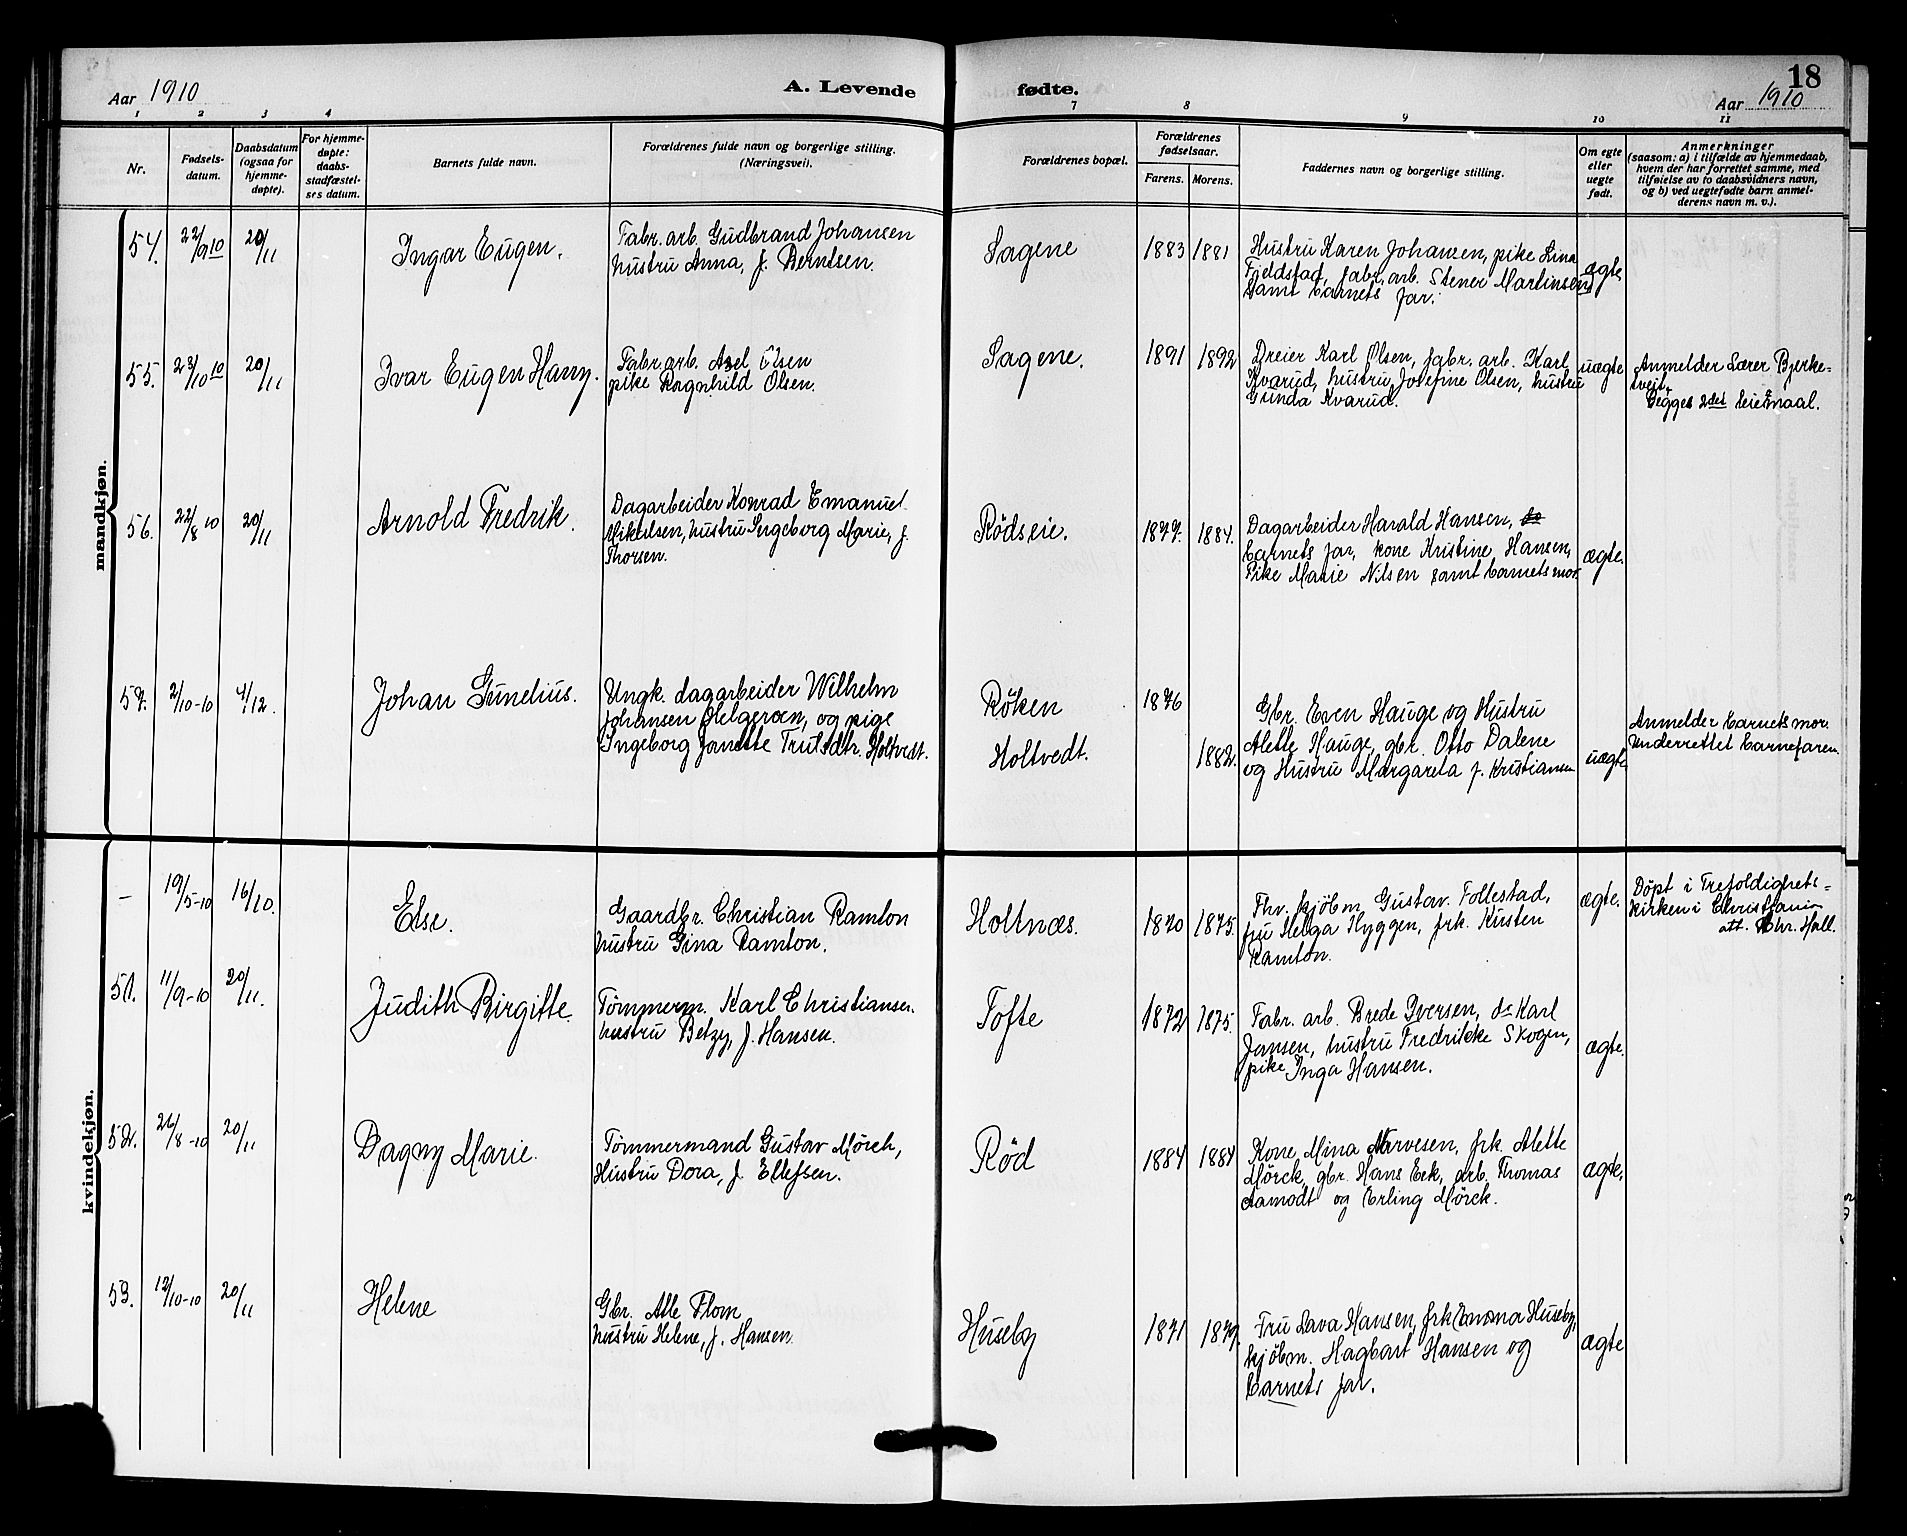 Aar 1910
A. Levende
fødte.
18
Aar 1910
1
2
3
4
7
8
9
10
11
Nr.
Fødsels-
datum.
Daabsdatum
(ogsaa for
hjemme-
døpte).
For hjemme-
døpte:
daabs-
stadfæstel-
ses datum.
Barnets fulde navn.
Forældrenes fulde navn og borgerlige stilling.
(Næringsvei).
Forældrenes bopæl.
Forældrenes
fødselsaar.
Farens.
Morens.
Faddernes navn og borgerlige stilling.
Om egte
eller
uegte
født.
Anmerkninger
(saasom: a) i tilfælde av hjemmedaab,
hvem der har forrettet samme, med
tilføielse av to daabsvidners navn,
og b) ved uegtefødte barn anmel-
derens navn m. v.).
mandkjøn.
54. 22/9 10 20/11
Ingar Eugen.
Fabr. arb. Gudbrand Johansen
hustru Anna, f. Berntsen.
Sagene
1883 1881
Hustru Karen Johansen, pike Lina
Fjeldstad, fabr. arb. Stener Martinsen
samt barnets far.
ægte
55. 23/10 10 20/11
Ivar Eugen Harry.
Fabr. arb. Axel Olsen
pike Ragnhild Olsen.
Sagene.
1891 1892
Dreier Karl Olsen, fabr. arb. Karl
Kvarud, hustru Josefine Olsen, hustru
Gunda Kvarud.
uægte
Anmelder Lærer Bjerke-
tveit.
Begges 2det leiermaal.
56. 22/8 10 20/11
Arnold Fredrik.
Dagarbeider Konrad Emanuel
Mikalsen, hustru Ingeborg Marie, f.
Thorsen.
Rødseie.
1877. 1884.
Dagarbeider Harald Hansen, ba
barnets far, kone Kristine Hansen,
Pike Marie Nilsen samt barnets mor.
ægte.
57. 2/10-10 4/12.
Johan Gunelius.
Ungk. dagarbeider Wilhelm
Johansen Helgeroen, og pige
Ingeborg Janette Trulsdtr. Holtvedt.
Røken
Holtvedt.
1876
1882.
Gbr. Even Hauge og Hustru
Alette Hauge, gbr. Otto Dalene
og Hustru Margareta f. Kristiansen
uægte
Anmelder barnets mor.
Underrettet barnefaren.
kvindekjøn.
– 19/5-10 16/10.
Else.
Gaardbr. Christian Ramton
hustru Gina Ramton.
Holtnæs.
1870 1875.
Fhv. kjøbm. Gustav Follestad,
fru Helga Hyggen, frk. Kirsten
Ramton.
ægte.
Døpt i Trefoldighets-
kirken i Christiania
att. Chr. Hall.
51. 11/9-10 20/11.
Judith Birgitte.
Tømmerm. Karl Christiansen.
hustru Betzy, f. Hansen.
Tofte
1872 1875.
Fabr. arb. Brede Iversen, do Karl
Jansen, hustru Fredrikke Skogen,
pike Inga Hansen.
ægte.
52. 26/8-10 20/11
Dagny Marie.
Tømmermand Gustav Mørch,
Hustru Dora, f. Ellefsen.
Rød
1884 1884
Kone Mina Narvesen, frk. Alette
Mørck, gbr. Hans Eek, arb. Thomas
Aamodt og Erling Mørck.
ægte.
53. 12/10-10 20/11
Helene
Gbr. Atle Flom
hustru Helene, f. Hansen.
Huseby
1871 1879.
Fru Lava Hansen, frk Emma Huseby,
kjøbm. Hagbart Hansen og
barnets far.
ægte